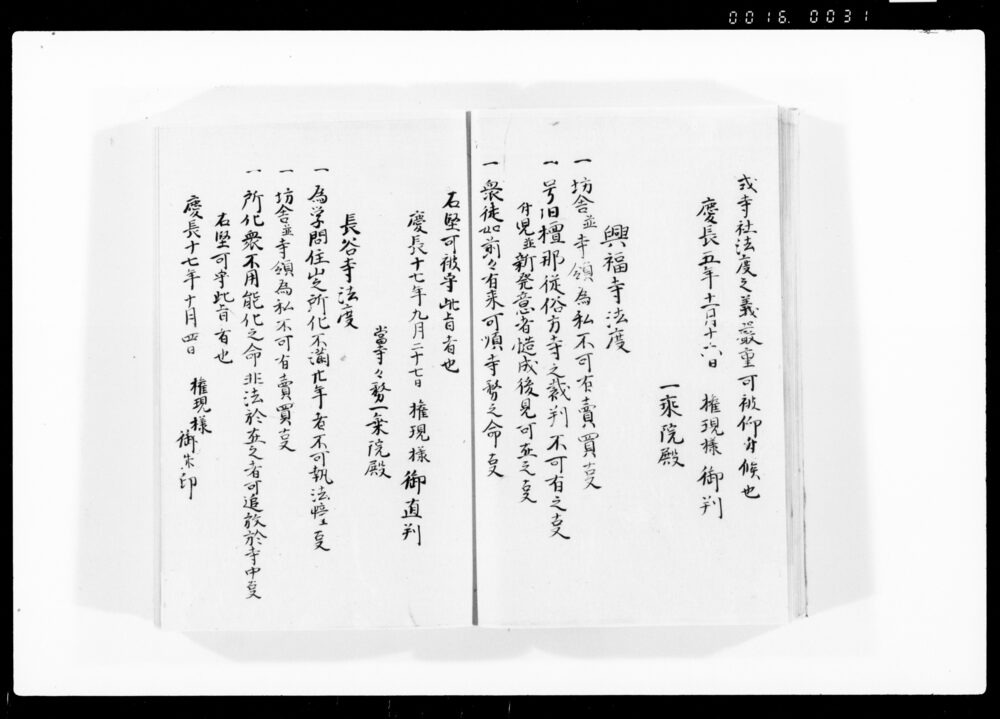 0016.0031
或寺社法度之義嚴重可被仰付候也
慶長五年十一月十六日 権現様御判
一乘院殿
興福寺法度
一 坊舎並寺領為私不可有賣買支
一 旧檀那従俗方寺之裁判不可有之支
付児並新発意者 成後見可 之支
一 衆徒如前々有来可順寺務之命支
右堅可被守此旨者也
慶長十七年九月二十七日 権現様御直判
當寺々務一乗院殿
長谷寺法度
一 為学問住山之所化不満廿年者不可執法幢支
一 坊舎並寺領為私不可有賣買支
一 所化衆不用能化之命非法於 之者可追放於寺中支
右堅可守此旨者也
慶長十七年十月四日 権現様御朱印